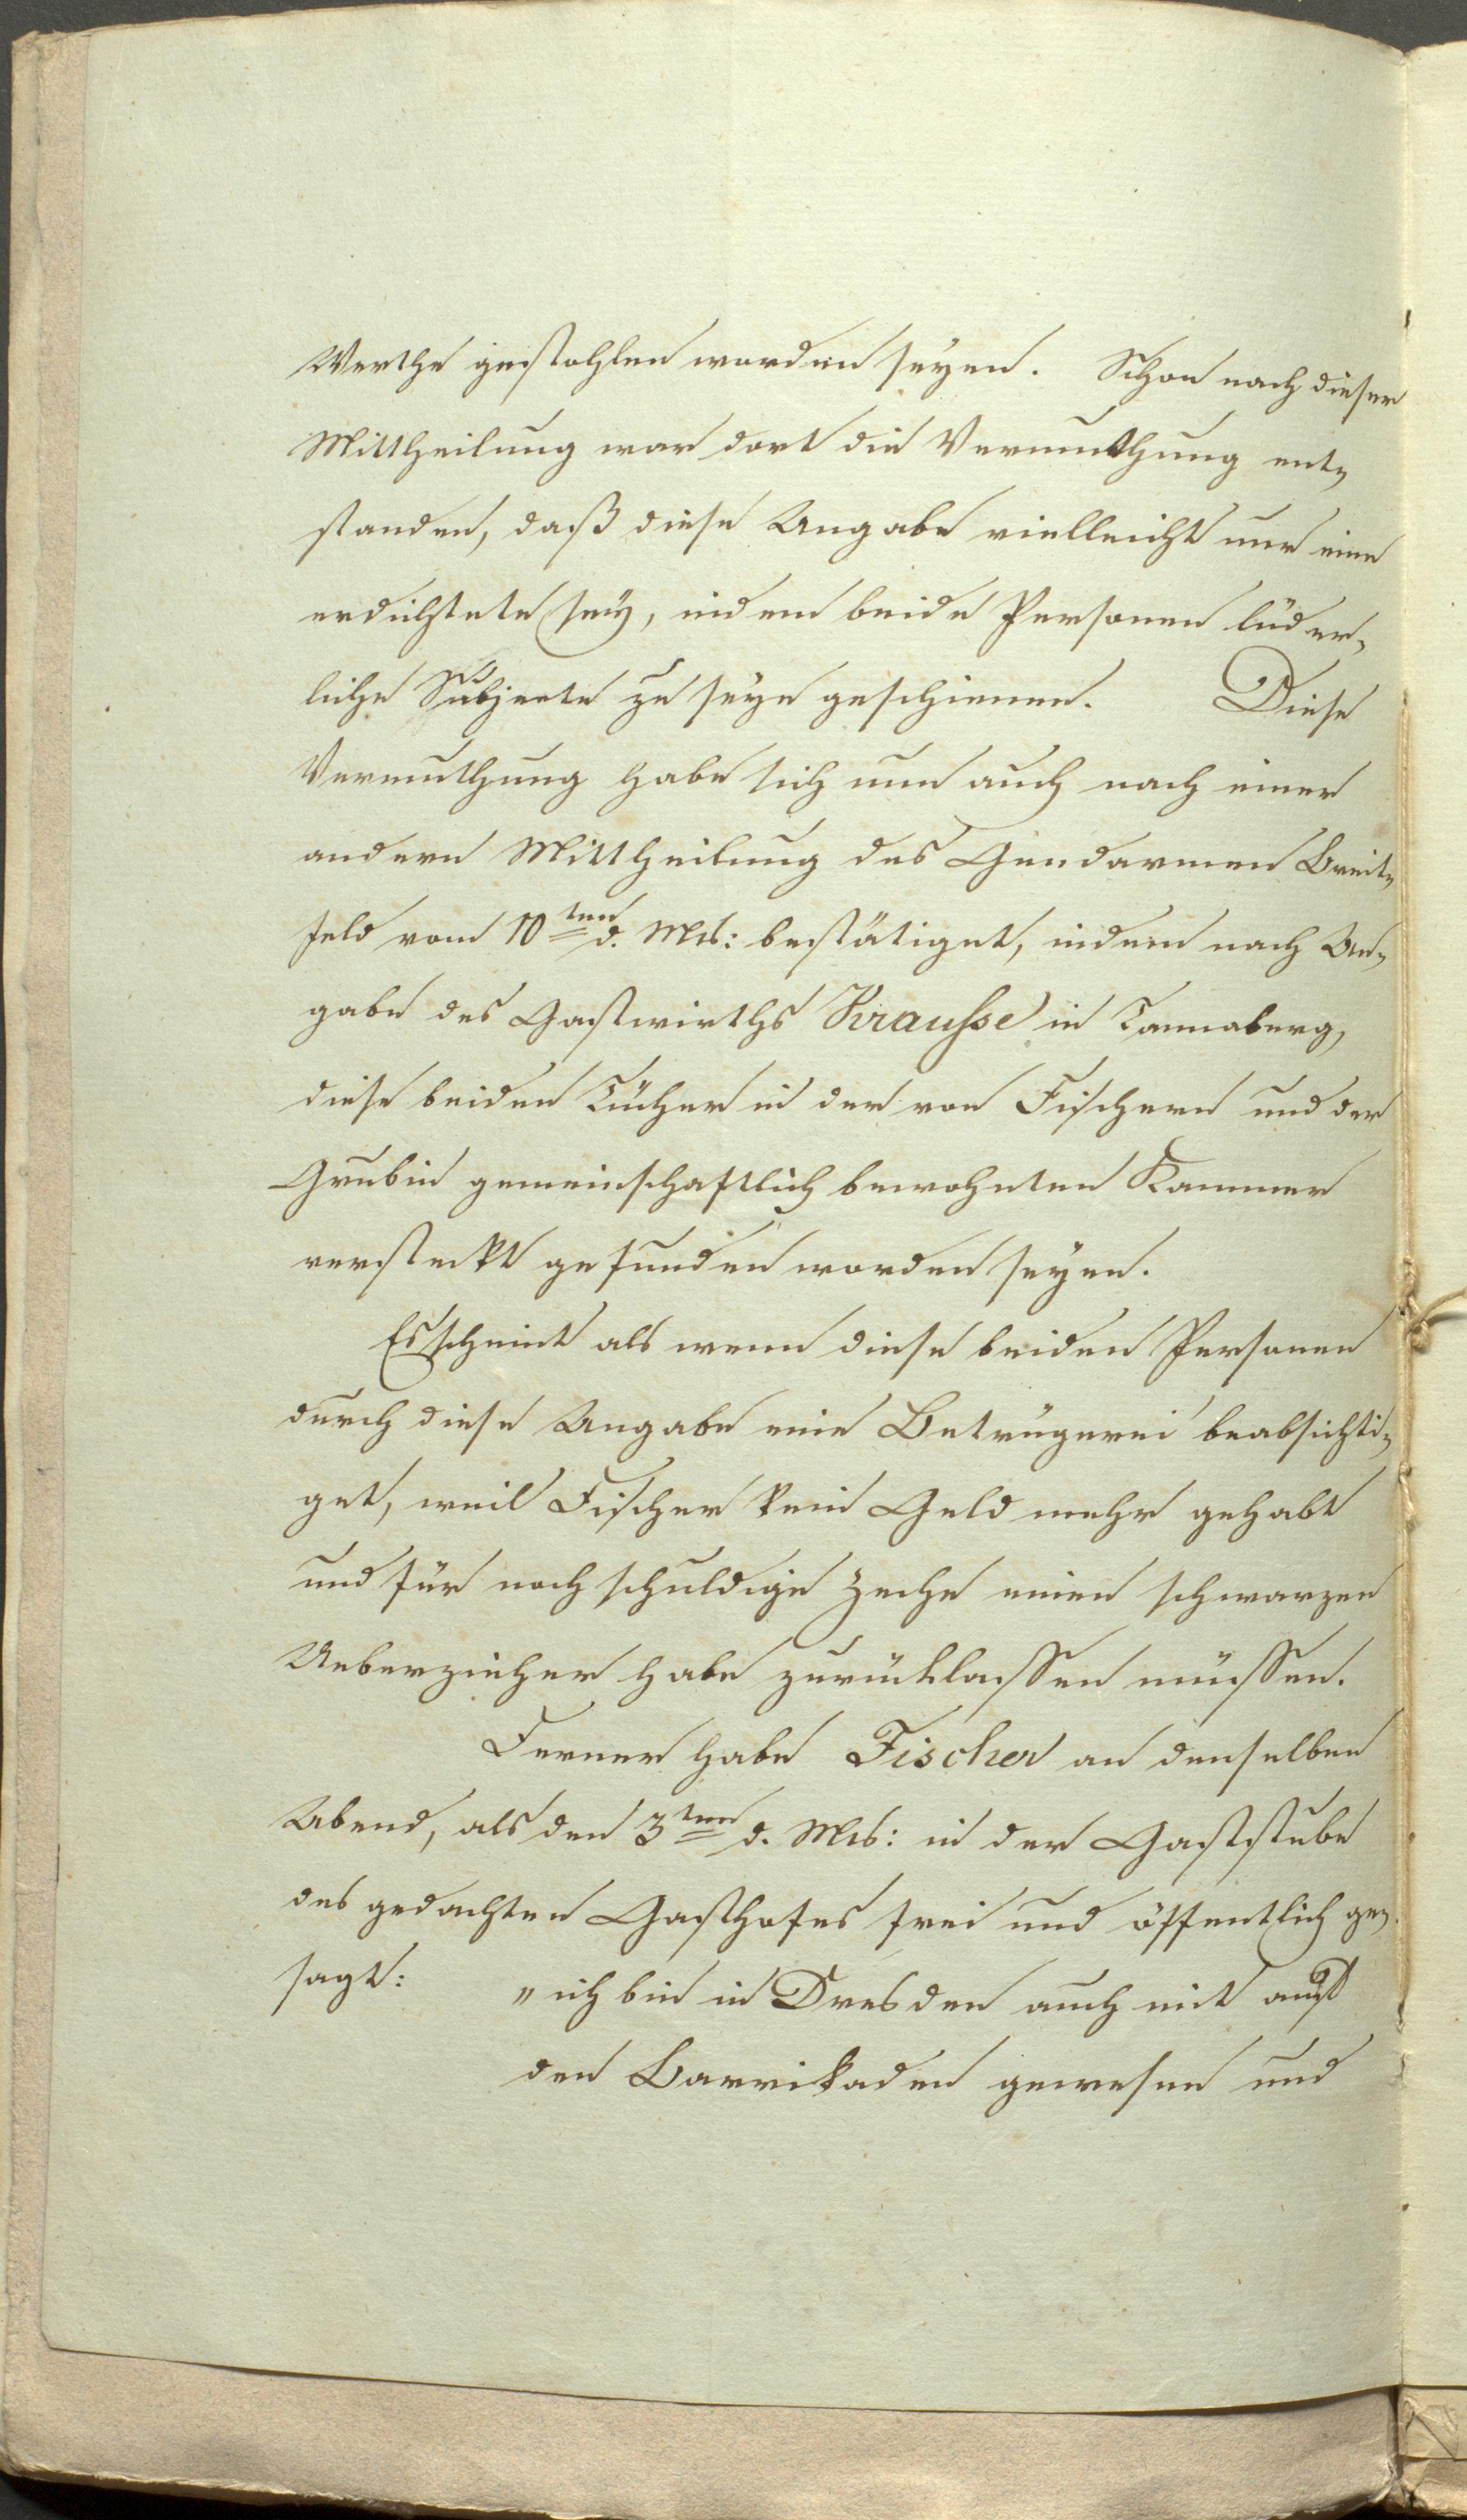 Werthe gestohlen worden seyen. Schon nach dieser
Mittheilung war dort die Vermuthung ent-
standen, daß diese Angabe vielleicht nur eine
erdichtete sey, indem beide Personen lüder-
liche Subjecte zu seyn geschienen. Diese
Vermuthung habe sich nun auch nach einer
andern Mittheilung des Gendarmen Breit-
feld vom 10ten d. Mts: bestätiget, indem nach An-
gabe des Gastwirths Krausse in Tanneberg,
diese beiden Tücher in der von Fischern und der
Grubin gemeinschaftlich bewohnten Kammer
versteckt gefunden worden seyen.
Es scheint als wenn diese beiden Personen
durch diese Angabe eine Betrügerei beabsichti-
get, weil Fischer kein Geld mehr gehabt
und für noch schuldige Zeche einen schwarzen
Ueberzieher habe zurücklassen müssen.
Ferner habe Fischer an denselben
Abend, als den 3ten d. Mts: in der Gaststube
des gedachten Gasthofes frei und öffentlich ge-
sagt: „ich bin in Dresden auch mit auf
den Barrikaden gewesen und